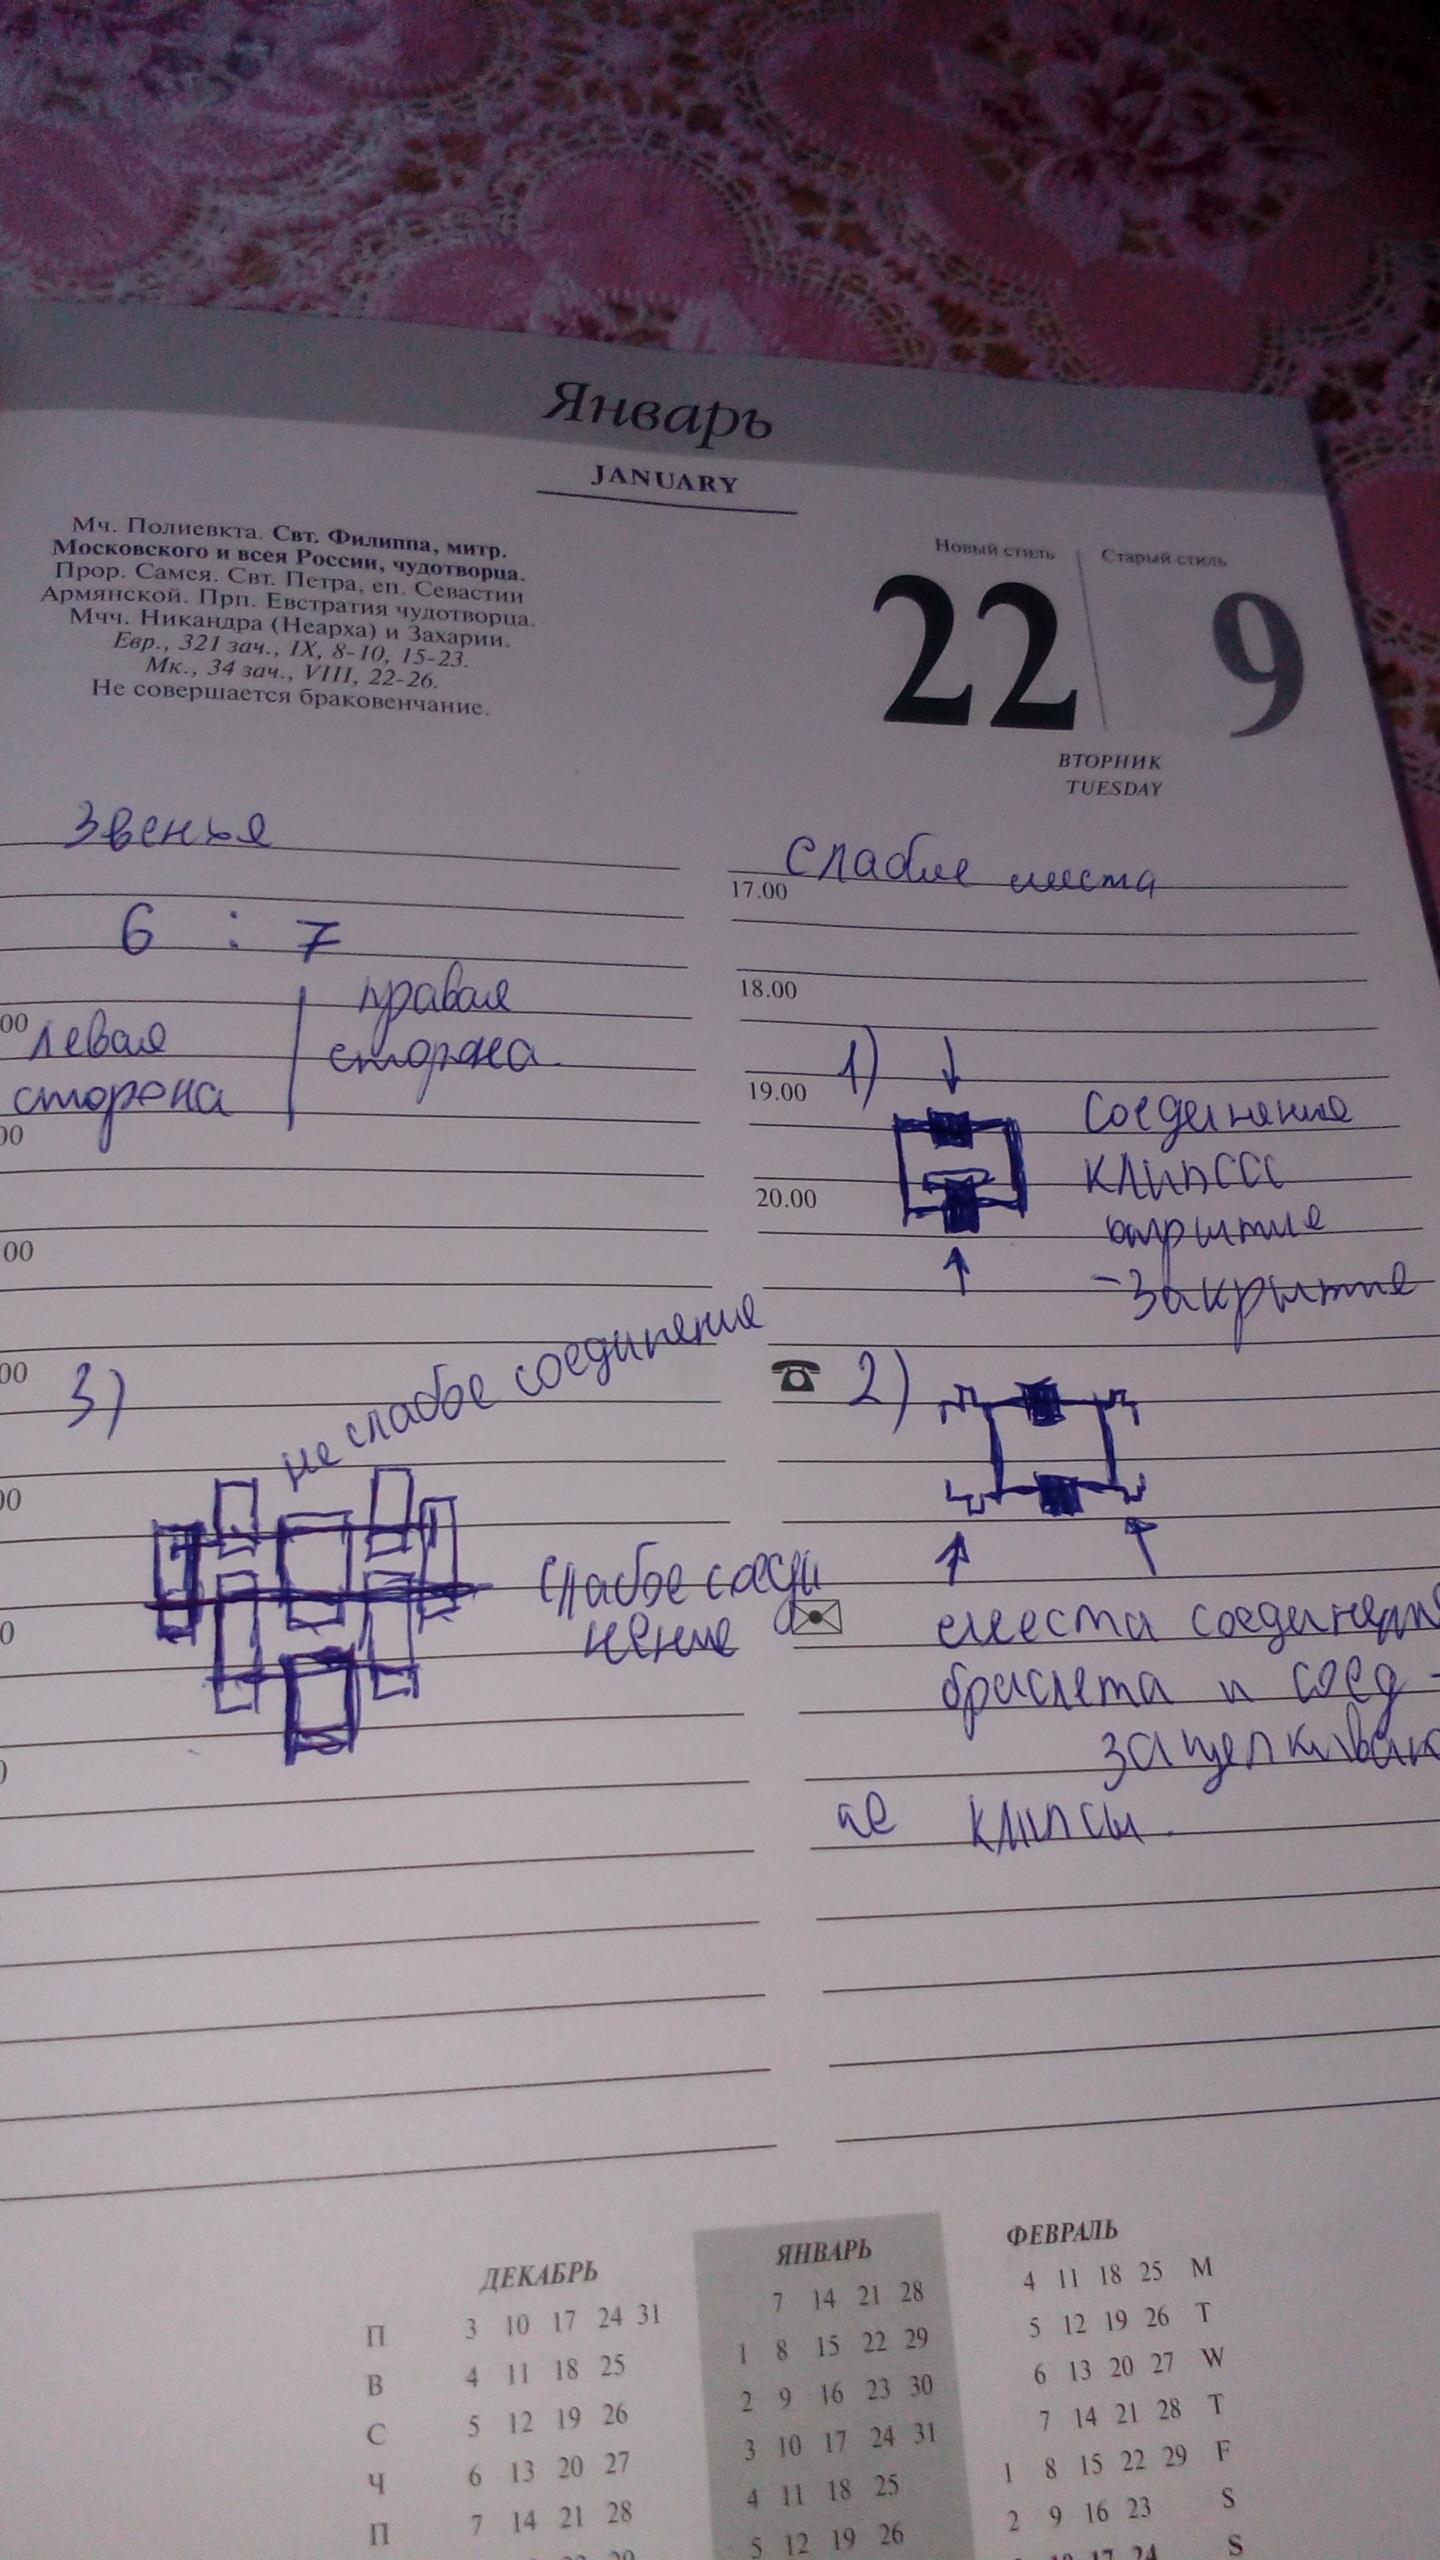 Январь
JANUARY
Мч. Полиевкта. Свт. Филиппа, митр.
Московского и всея России, чудотворца.
Прор. Самея. Свт. Петра, еп. Севастии
Армянской. Прп. Евстратия чудотворца.
Мчч. Никандра (Неарха) и Захарии.
Евр., 321 зач., IX, 8-10, 15-23.
Мк., 34 зач., VIII, 22-26.
Не совершается браковенчание.
Новый стиль Старый стиль
22 9
ВТОРНИК
TUESDAY
Звенья
6 : 7
левая
сторона
правая
сторона
слабые места
17.00
18.00
19.00
20.00
1)
Соединение
клипссс
открытие
-закрытие
2)
места соединения
браслета и соед-
защелкиваю
ие клипсы.
3)
не слабое соединение
слабое соеди
нение
00
00
00
00
00
0
0
ДЕКАБРЬ
П 3 10 17 24 31
В 4 11 18 25
С 5 12 19 26
Ч 6 13 20 27
П 7 14 21 28
ЯНВАРЬ
7 14 21 28
1 8 15 22 29
2 9 16 23 30
3 10 17 24 31
4 11 18 25
5 12 19 26
ФЕВРАЛЬ
4 11 18 25 M
5 12 19 26 T
6 13 20 27 W
7 14 21 28 T
1 8 15 22 29 F
2 9 16 23 S
17 24 S